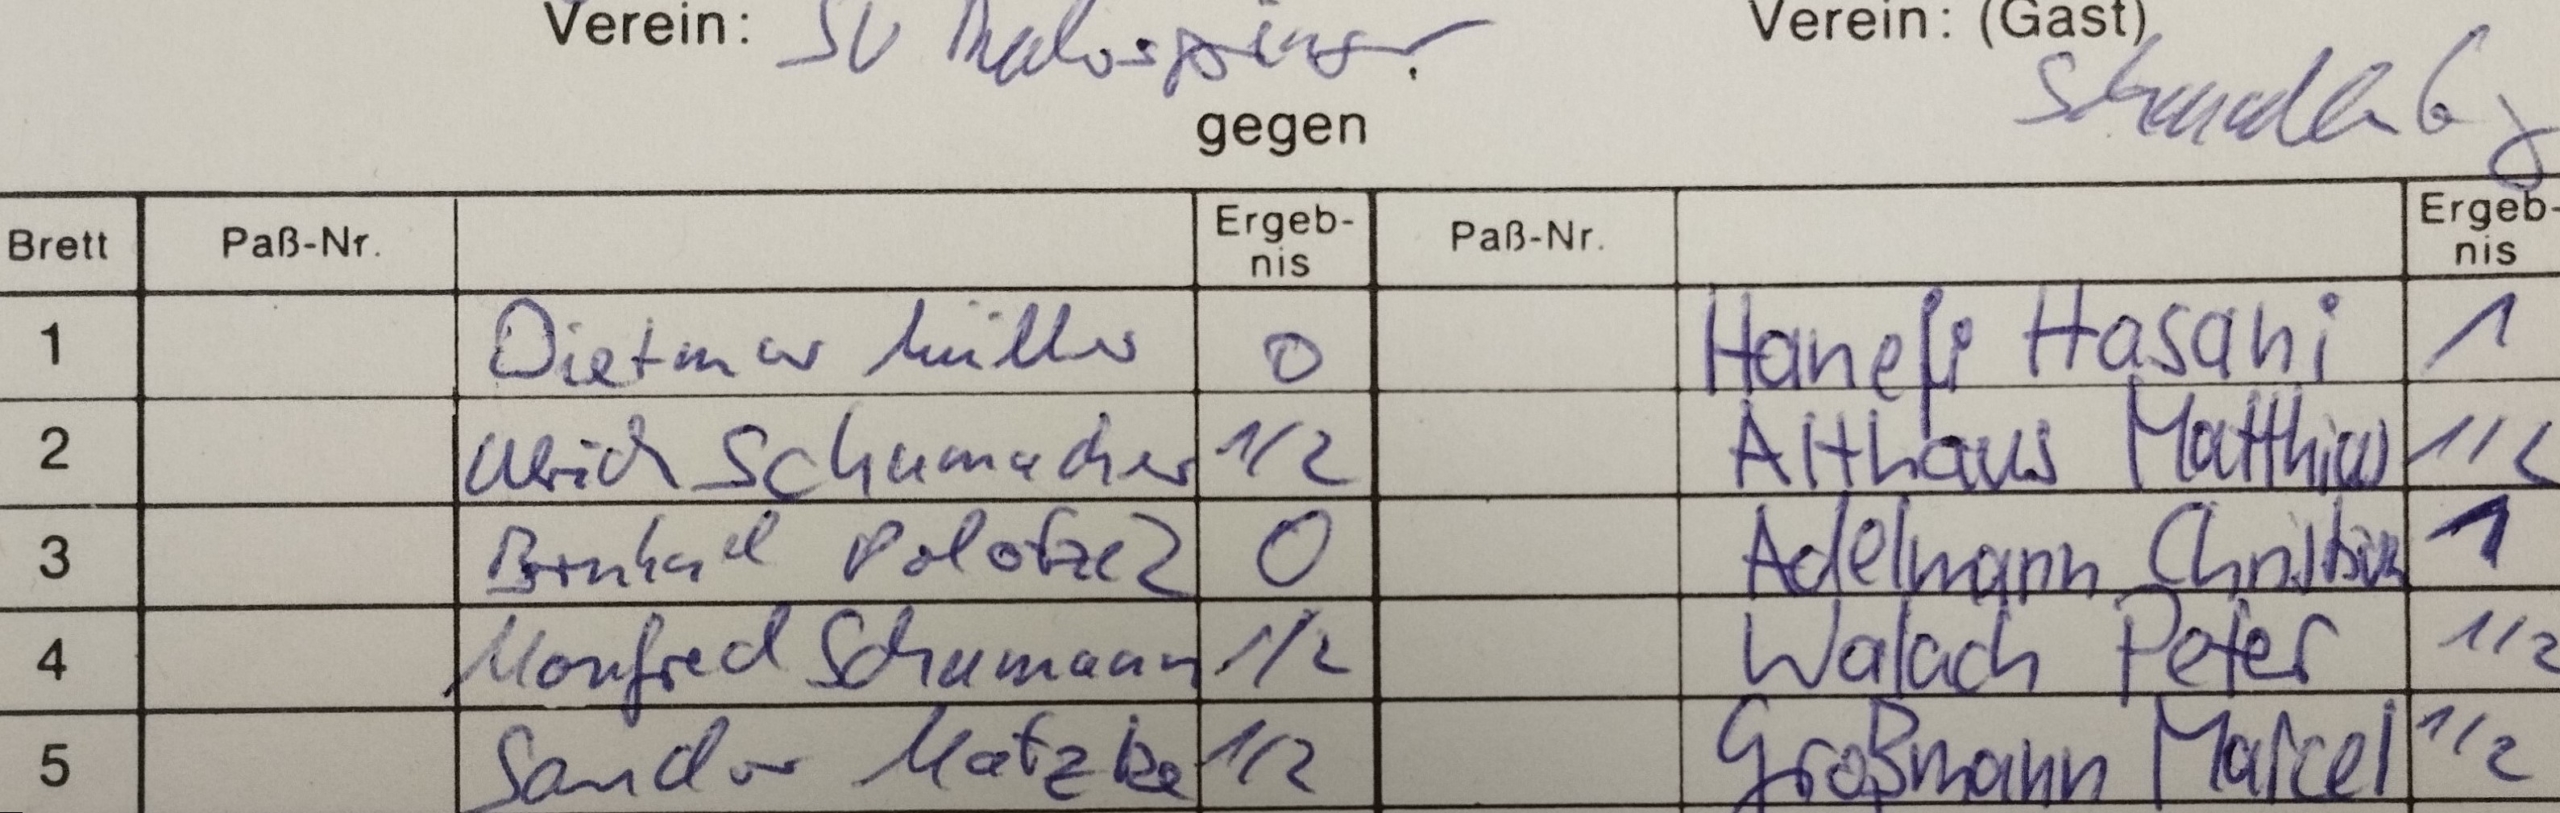 Verein: SV Verein: (Gast)
gegen
Brett Paß-Nr. Ergeb-nis Paß-Nr. Ergeb-nis
1 Dietmar Müller 0 Hanefi Hasani 1
2 Ulrich Schumacher 1/2 Althaus Matthias 1/2
3 Bernhard 0 Adelmann Christian 1
4 Manfred Schumann 1/2 Walach Peter 1/2
5 Sandor Matzke 1/2 Großmann Marcel 1/2